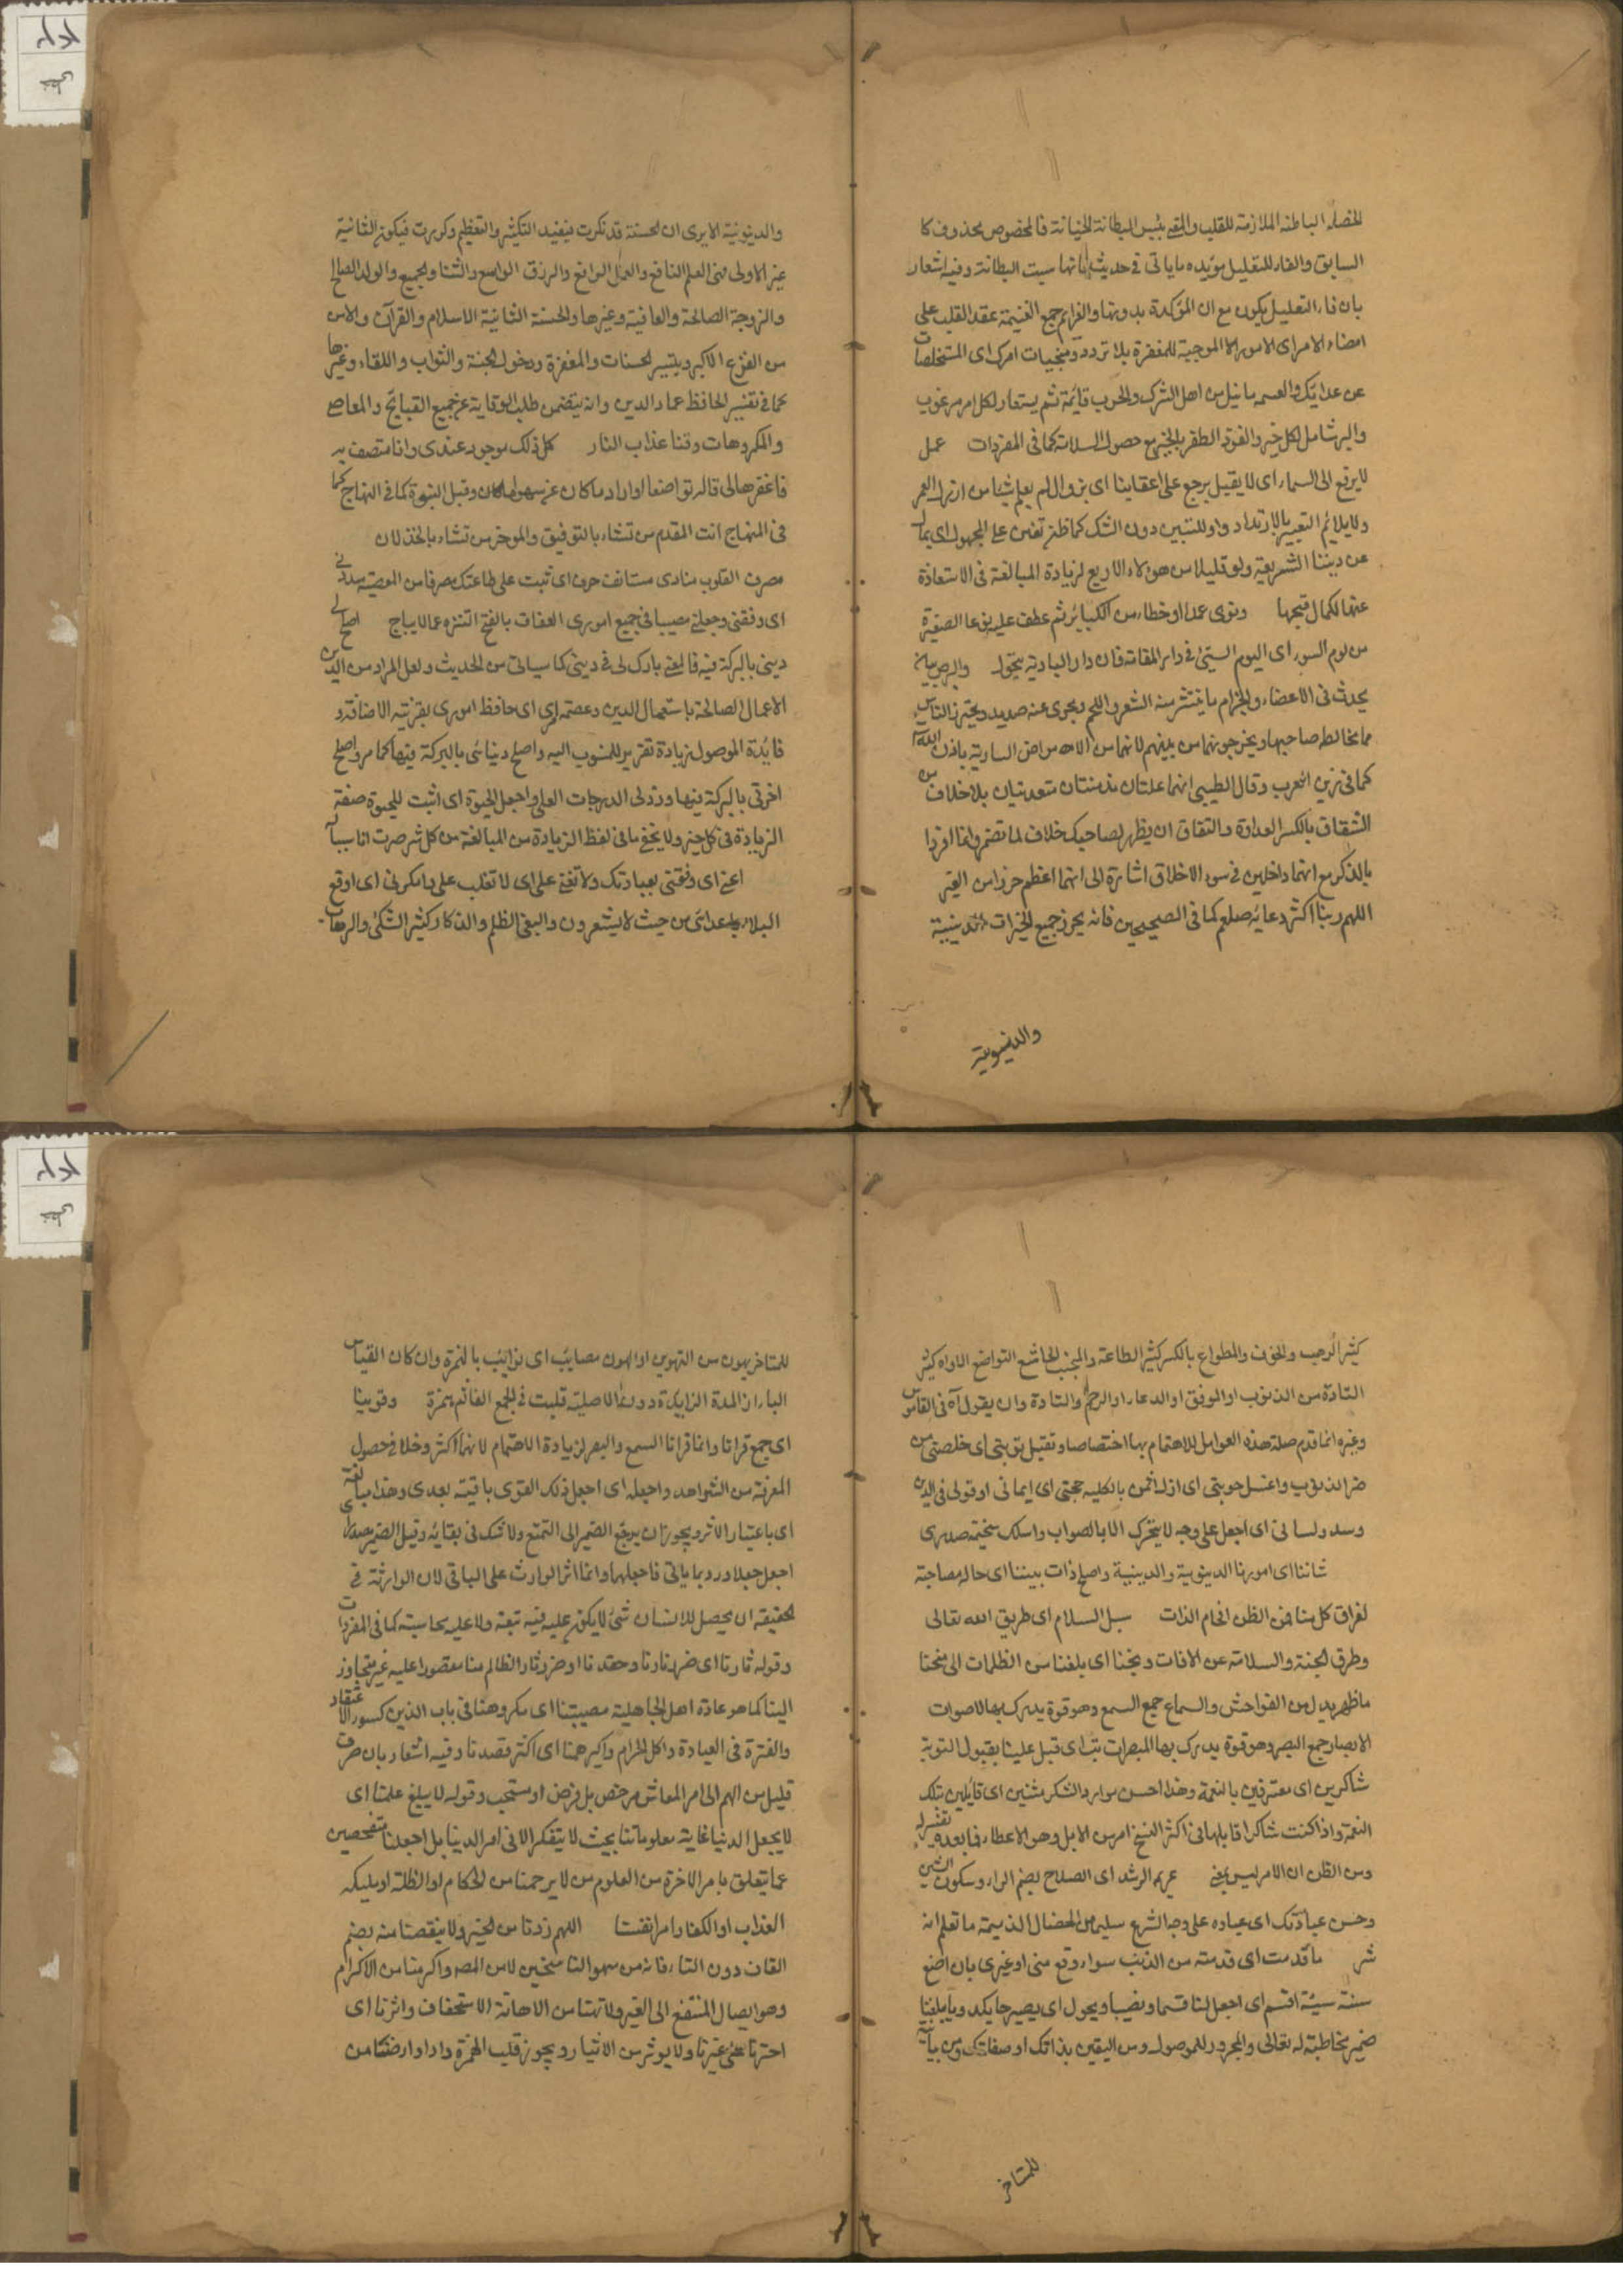 الخصلة الباطنة الملازمة للقلب والمعنى بئس البطانة الخيانة فالمخصوص محذوف كا
السابق والفاء للتعليل مؤيده ما ياتى فى حديث فانها بئست البطانة وفيه اشعار
بان فاء التعليل يكون مع ان المؤكدة بدونها والغرائم جمع الغنيمة عقد القلب على
امضاء الامر اى الامور الموجبة للمغفرة بلا تردد ومنجيات امرك اى المتخلصات
عن عذابك والغنيمة ما نيل من اهل الشرك والحرب قائمة ثم يستعار لكل امر مرغوب
والبر شامل لكل خير والفوز الظفر بالخير مع حصول السلامة كما فى المفردات عمل
لا يرفع الى السماء اى لا يقبل يرجع على اعقابنا اى يزوال لم يعلم شيئا من ارذل العمر
ولا يلائم التعبير بالارتداد واو للتبيين دون الشك كما ظن تفتن على المجهول اى يمال
عن ديننا الشريعة ولو قليلا من هؤلاء الاربع لزيادة المبالغة فى الاستعاذة
عنها لكمال قبحها ونوى عمدا او خطاء من الكبائر ثم عطف عليه نوعا الصغيرة
من يوم السوء اى اليوم السيئ فى دار المقامة فان دار البادية يتحول والبرص بياض
يحدث فى الاعضاء والجذام ما ينتشر منه الشعر واللحم ويجرى عنه صديد ويحترز الناس
مما يخالط صاحبها ويخرجونهما من بينهم لانهما من الامراض السارية باذن الله
كما فى زين العرب وقال الطيبى انهما علتان مزمنتان متعديتان بلا خلاف من
الشقاق بالكسر العداوة والنفاق ان يظهر لصاحبك خلاف ما تضمر وانما افردا
بالذكر مع انهما داخلين فى سوء الاخلاق اشارة الى انهما اعظم حزرا من الغير
اللهم ربنا اكثر دعائه صلعم كما فى الصحيحين فانه يحرز جميع الخيرات الدينية
والدنيوية
والدنيوية الا يرى ان الحسنة قد نكرت فيفيد التكثير والتعظيم وكررت فيكون الثانية
غير الاولى فهى العلم النافع والعمل الرافع والرزق الواسع والثناء والجميع والولد الصالح
والزوجة الصالحة والعافية وغيرها والحسنة الثانية الاسلام والقرآن والامن
من الفزع الاكبر وتيسير الحسنات والمغفرة ودخول الجنة والثواب واللقاء وغيرها
كما فى تفسير الحافظ عماد الدين وانه يتضمن طلب الوقاية عن جميع القبائح والمعاصى
والمكروهات وقنا عذاب النار كل ذلك موجود عندى وانا متصف به
فاغفرها لى قاله تواضعا او اراد ما كان عن سهو او ما كان وقبل النبوة كما فى النهاج كما
فى المنهاج انت المقدم من تشاء بالتوفيق والموخر من تشاء بالخذلان
مصرف القلوب منادى مستانف حرف اى ثبت على طاعتك مصرفا من المعصية سددنى
اى وفقنى وجعلنى مصيبا فى جميع امورى العفاف بالفتح التنزه عما لا يباح اصلح لى
دينى بالبركة فيه فالمعنى بارك لى فى دينى كما سياتى من الحديث ولعل المراد من الدين
الاعمال الصالحة باستعمال الدين وعصمة امرى اى حافظ امورى بقرينة الاضافة و
فائدة الموصول زيادة تقرير للمنسوب اليه واصلح دنياى بالبركة فيها كما مر واصلح
اخرتى بالبركة فيها وزد لى الدرجات العلى واجعل الحيوة اى اثبت للحيوة صفة
الزيادة فى كل خير ولا يخفى ما فى لفظ الزيادة من المبالغة من كل شر صرت انا سببا
اعنى اى وفقنى بعبادتك ولا تعن على اى لا تغلب على وامكر لى اى اوقع
البلاء باعدائى من حيث لا يشعرون والبغى الظلم والذكار كثير الشكى والرهاب
كثير الرهب والخوف والمطواع بالكسر كثير الطاعة والمخبت الخاشع التواضع الاواه كثير
التاوة من الذنوب او الموفق او الدعاء او الرحم والتاوة وان يقول آه فى القاموس
وغيره انما قدم صلة هذه العوامل للاهتمام بها اختصاصا وتقبل توبتى اى خلصنى من
ضر الذنوب واغسل حوبتى اى ازل اثمى بالكلية حجتى اى ايمانى او قولى فى الدين
وسدد لسانى اى اجعل على وجه لا يتحرك الا بالصواب واسلل سخيمة صدرى
شاننا اى امورنا الدنيوية والدينية واصلح ذات بيننا اى حاله مصاحبة
لفراق كل منا فمن الظن اقحام الذات سبل السلام اى طريق الله تعالى
وطرق الجنة والسلامة عن الافات ونجنا اى بلغنا من الظلمات الى منحنا
ما ظهر بدل من الفواحش والسماع جمع السمع وهو قوة يدرك بها الاصوات
الابصار جمع البصر وهو قوة يدرك بها المبصرات تب اى قبل علينا بقبول التوبة
شاكرين اى معترفين بالنعمة وهذا احسن موارد الشكر مثنين اى قائلين بتلك
النعمة واذا كنت شاكرا قابلها فى اكثر النسخ امر من الامل وهو الاعطاء فما بعده تفسير له
ومن الظن ان الامر ليس بمعنى عزيم الرشد اى الصلاح بضم الراء وسكون الشين
وحسن عبادتك اى عباده على وجه الشرع سليما من الخصال الذميمة ما تعلم انه
شر ما قدمت اى قدمته من الذنب سواء وقع منى او غيرى بان اضع
سنة سيئة اقسم اى اجعل لنا قسما ونصيبا ويحول اى يصير حايكد وبا يبلغنا
ضمير مخاطبة له تعالى والمجرور للموصول ومن اليقين بذاتك او صفاتك ومن بيانية
للمتاخر
للمتاخر يهون من التهوين او الهون مصائب اى نوائب بالهمزة وان كان القياس
الباء اذ المدة الزايدة دون الاصلية قلبت فى الجمع الفائم بهمزة وقوينا
اى جمع قراتا وانما قراتا السمع والبصر لزيادة الاهتمام لانهما اكثر دخلا فى حصول
المعرفة من الشواهد واجعله اى اجعل ذلك القوى باقية بعدى وهذا مبالغة
اى باعتبار الاثر ويجوز ان يرجع الضمير الى التمتع ولا شك فى بقائه وقيل الضمير مصدر اى
اجعل جعلا وردبما ياتى فاجعلها وانما اثر الوارث على الباقى لان الوارثة فى
الحقيقة ان يحصل للانسان شئ لا يكون عليه فيه تبعة ولا عليه محاسبة كما فى المفردات
وقوله ثارنا اى ضرنا رنا وحقدنا او ضرر ثار والظالم منا مقصورا عليه غير متجاوز
الينا كما هو عادة اهل الجاهلية مصيبتنا اى مكروهنا فى باب الدين كسوء الاعتقاد
والفترة فى العبادة واكل الحرام واكبر همنا اى اكثر قصدنا وفيه اشعار بان صرف
قليل من الهم الى امر المعاش مرخص بل فرض او مستحب وقوله لا يبلغ علمنا اى
لا يجعل الدنيا غاية معلوماتنا بحيث لا يتفكر الا فى امر الدنيا بل اجعلنا متفحصين
عما يتعلق بامر الاخرة من العلوم من لا يرحمنا من الحكام او الظلمة او مليكه
العذاب او الكفار امر انفسنا اللهم زدنا من الخير ولا ينقصنا منه بضم
القاف دون التاء فانه من سهو الناسخين لا من المصر واكرمنا من الاكرام
وهو ايصال المنتفع الى الغير ولا تهنا من الاهانة الاستخفاف واثرنا اى
اخترنا على غيرنا ولا يوثر من الاثيار ويجوز قلب الهمزة وادا وارضنا من